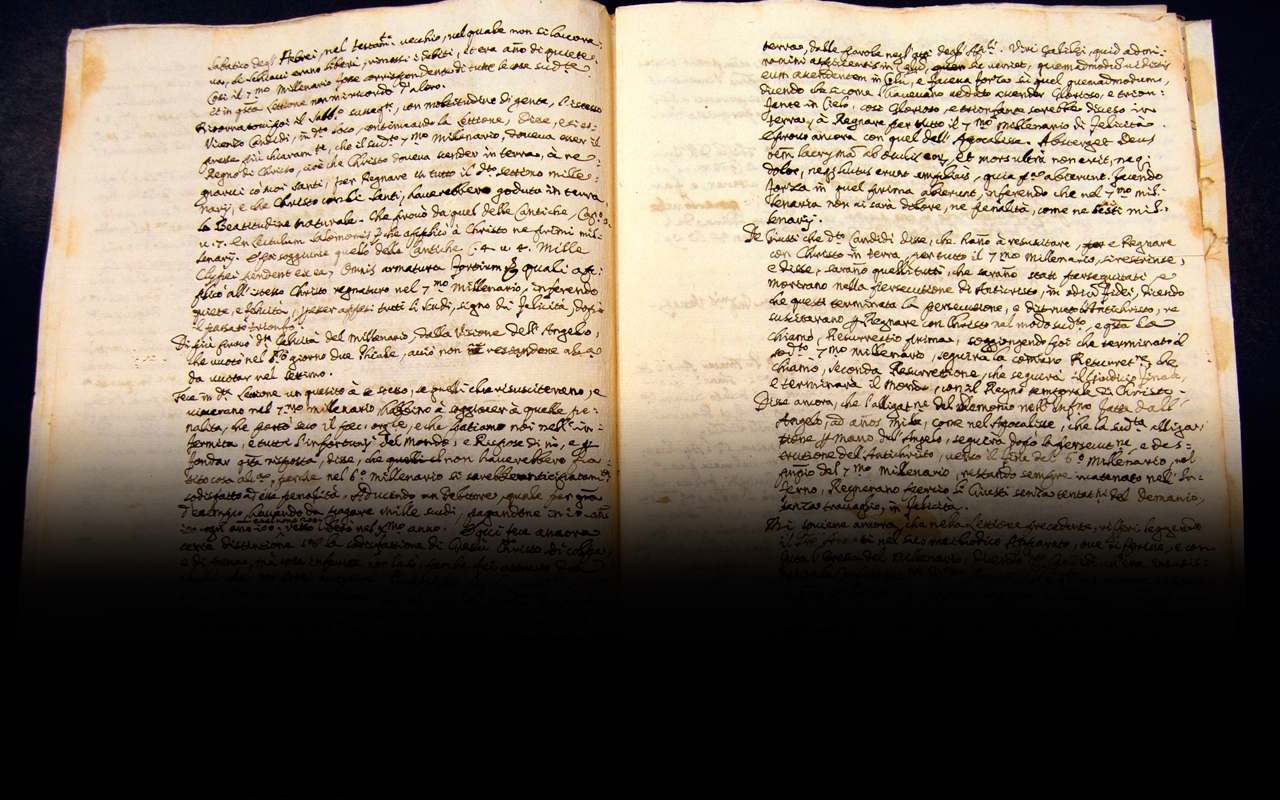 sabatico degl' Hebrei, nel testam.to vecchio, nel quale non si lavora:
va, li schiavi erano liberi, rimessi i debiti, et era año di quiete,
Così il 7.mo Millenario fosse corrispondente di tutte le cose sud.te
et in q.sta lettione non mi ricordo d'altro.
Ritornatoui poi il Sabb.o susseg.te, con moltitudine di gente, l'istesso
Vicenzo Candidi, in d.to loco, continuando la lettione, Disse, et si es:
presse più chiaram.te, che il sud.to 7.mo Millenario, doueua esser il
Regno di Christo, cioè che Christo doueua scender in terra, à re:
gnarui co' suoi santi, per Regnare in tutto il d.to settimo mille:
nario, e che Christo con li santi, hauerebbero goduto in terra
la Beatitudine naturale. Che prouò da quel delle Cantiche,
u. 7. en lectulum Salomonis che applicò à Christo ne primi mil:
lenarij. E poi soggiunse quello delle Cantiche C. 4 u. 4. Mille
Clypei pendent ex ea, Omnis armatura fortium quali ap:
plicò all'istesso Christo regnaturo nel 7.mo Millenario, inferendo
quiete, e felicità, p esser appesi tutti li scudi, segno di felicità, dopò
il passato trionfo.
Di più prouò d.ta felicità del millenario, dalla Visione dell'Angelo,
che vuotò nel 6.to giorno due fiale, acciò non restandone
da vuotar nel settimo.
Fece in d.ta lettione un quesito à se stesso, se quelli che risusciteranno, e
viueranno nel 7.mo millenario habbino à soggiacer à quelle pe:
nalità, che portò seco il pecc. orig.le, e che patiamo noi nell'in:
fermità, e tutti l'infortunij del Mondo, e Rispose di nò, e p
fondar q.sta risposta, disse, che quelli non hauerebbero pa:
tito cosa al.na, perche nel 6.o Millenario si sarebbe anticipatam.te
sodisfatto d.te penalità, Aducendo un debitore, quale per gra
d'esempio, hauendo da pagare mille scudi, pagandone in
ogni anno 200: nel 7.mo anno. E qui fece ancora
certa distintione sop.a la sodisfattione di Giesù Christo di colpa,
e di pena, mà cosa inferisse non la sò
terra, dalle parole negl'atti degl'Ap.li. Viri Galilei, quid admi:
ramini aspicientes in Celu, veniet, quemadmodu vidistis
eum ascendentem in Celu, e faceua forza sù quel quemadmodum,
dicendo che si come l'haueuano veduto ascender Glorioso, e trion:
fante in Cielo, così Glorioso, e trionfante sarebbe disceso in
terra, à Regnare per tutto il 7.mo Millenario di felicità.
E prouò ancora con quel dell'Apocalisse. Absterget Deus
oem lacryma ab oculis eoru, et mors ultra non erit, neq
dolor, neq luctus erunt amplius, quia p.a abierunt. facendo
forza in quel prima abierunt, inferendo che nel 7.mo mil:
lenario non ui sarà dolore, ne penalità, come ne sesti mil:
lenarij.
De Giusti che d.to Candidi disse, che hano à resuscitare, e Regnare
con Christo in terra, per tutto il 7.mo Millenario, si restrinse,
e disse, sarano quelli tutti, che sarano stati perseguitati, e
morirano nella persecutione di Antichristo, in odiu fidei, dicendo
che questi terminata la persecutione, e distrutto Antichristo, re
suscitarano p Regnare con Christo nel modo sud.to, e q.sta la
chiamò, Resurrectio prima, soggiongendo poi che terminato il
sud.to 7.mo Millenario, seguirà la comune Resurret.ne, che
chiamò, seconda Resurrettione, che seguirà il giuditio finale,
e terminerà il Mondo, con il Regno temporale di Christo.
Disse ancora, che l'alligat.ne del Demonio nell'Inferno fatta dall'
Angelo, ad anos mille, come nel Apocalisse, che la sud.ta alliga:
tione p mano del Angelo, seguirà dopò la persecut.ne, e des:
trutione dell'Antichristo, verso il fine del 6.o Millenario, nel
prinpio del 7.mo Millenario, restando sempre incatenato nell'In:
ferno, Regnerano perciò li Giusti senza tentat.ni del Demonio,
senza trauaglio, in felicità.
Mi souiene ancora, che nella lettione precedente, riferì leggendo
il nel suo methodico Apparato, oue riferisce, e con:
futa l'opere del Millenario,